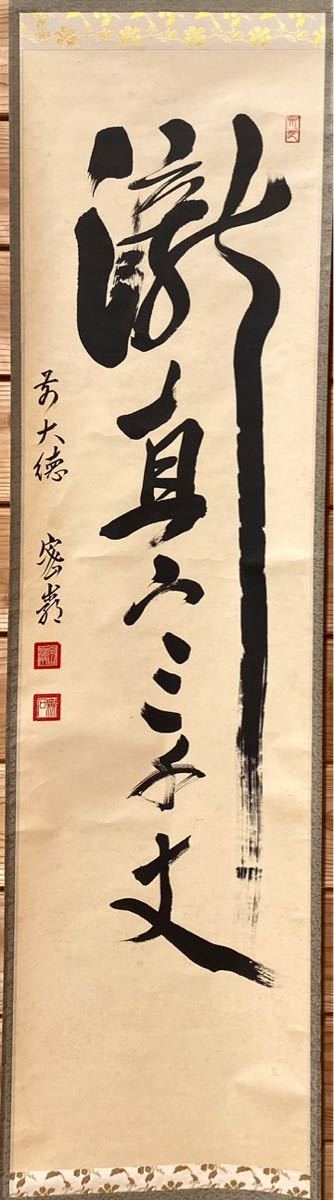 瀧直下三千丈
前大徳